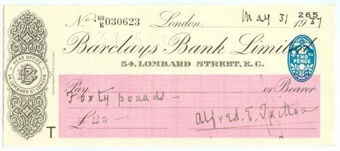 No. 60/E 030623 London, May 31 1957
265
Barclays Bank Limited
54, LOMBARD STREET, E.C.
HEAD OFFICE
54 LOMBARD ST LONDON
B
TWO PENCE
Pay or Bearer
Forty pounds
£40
Alfred E.
T